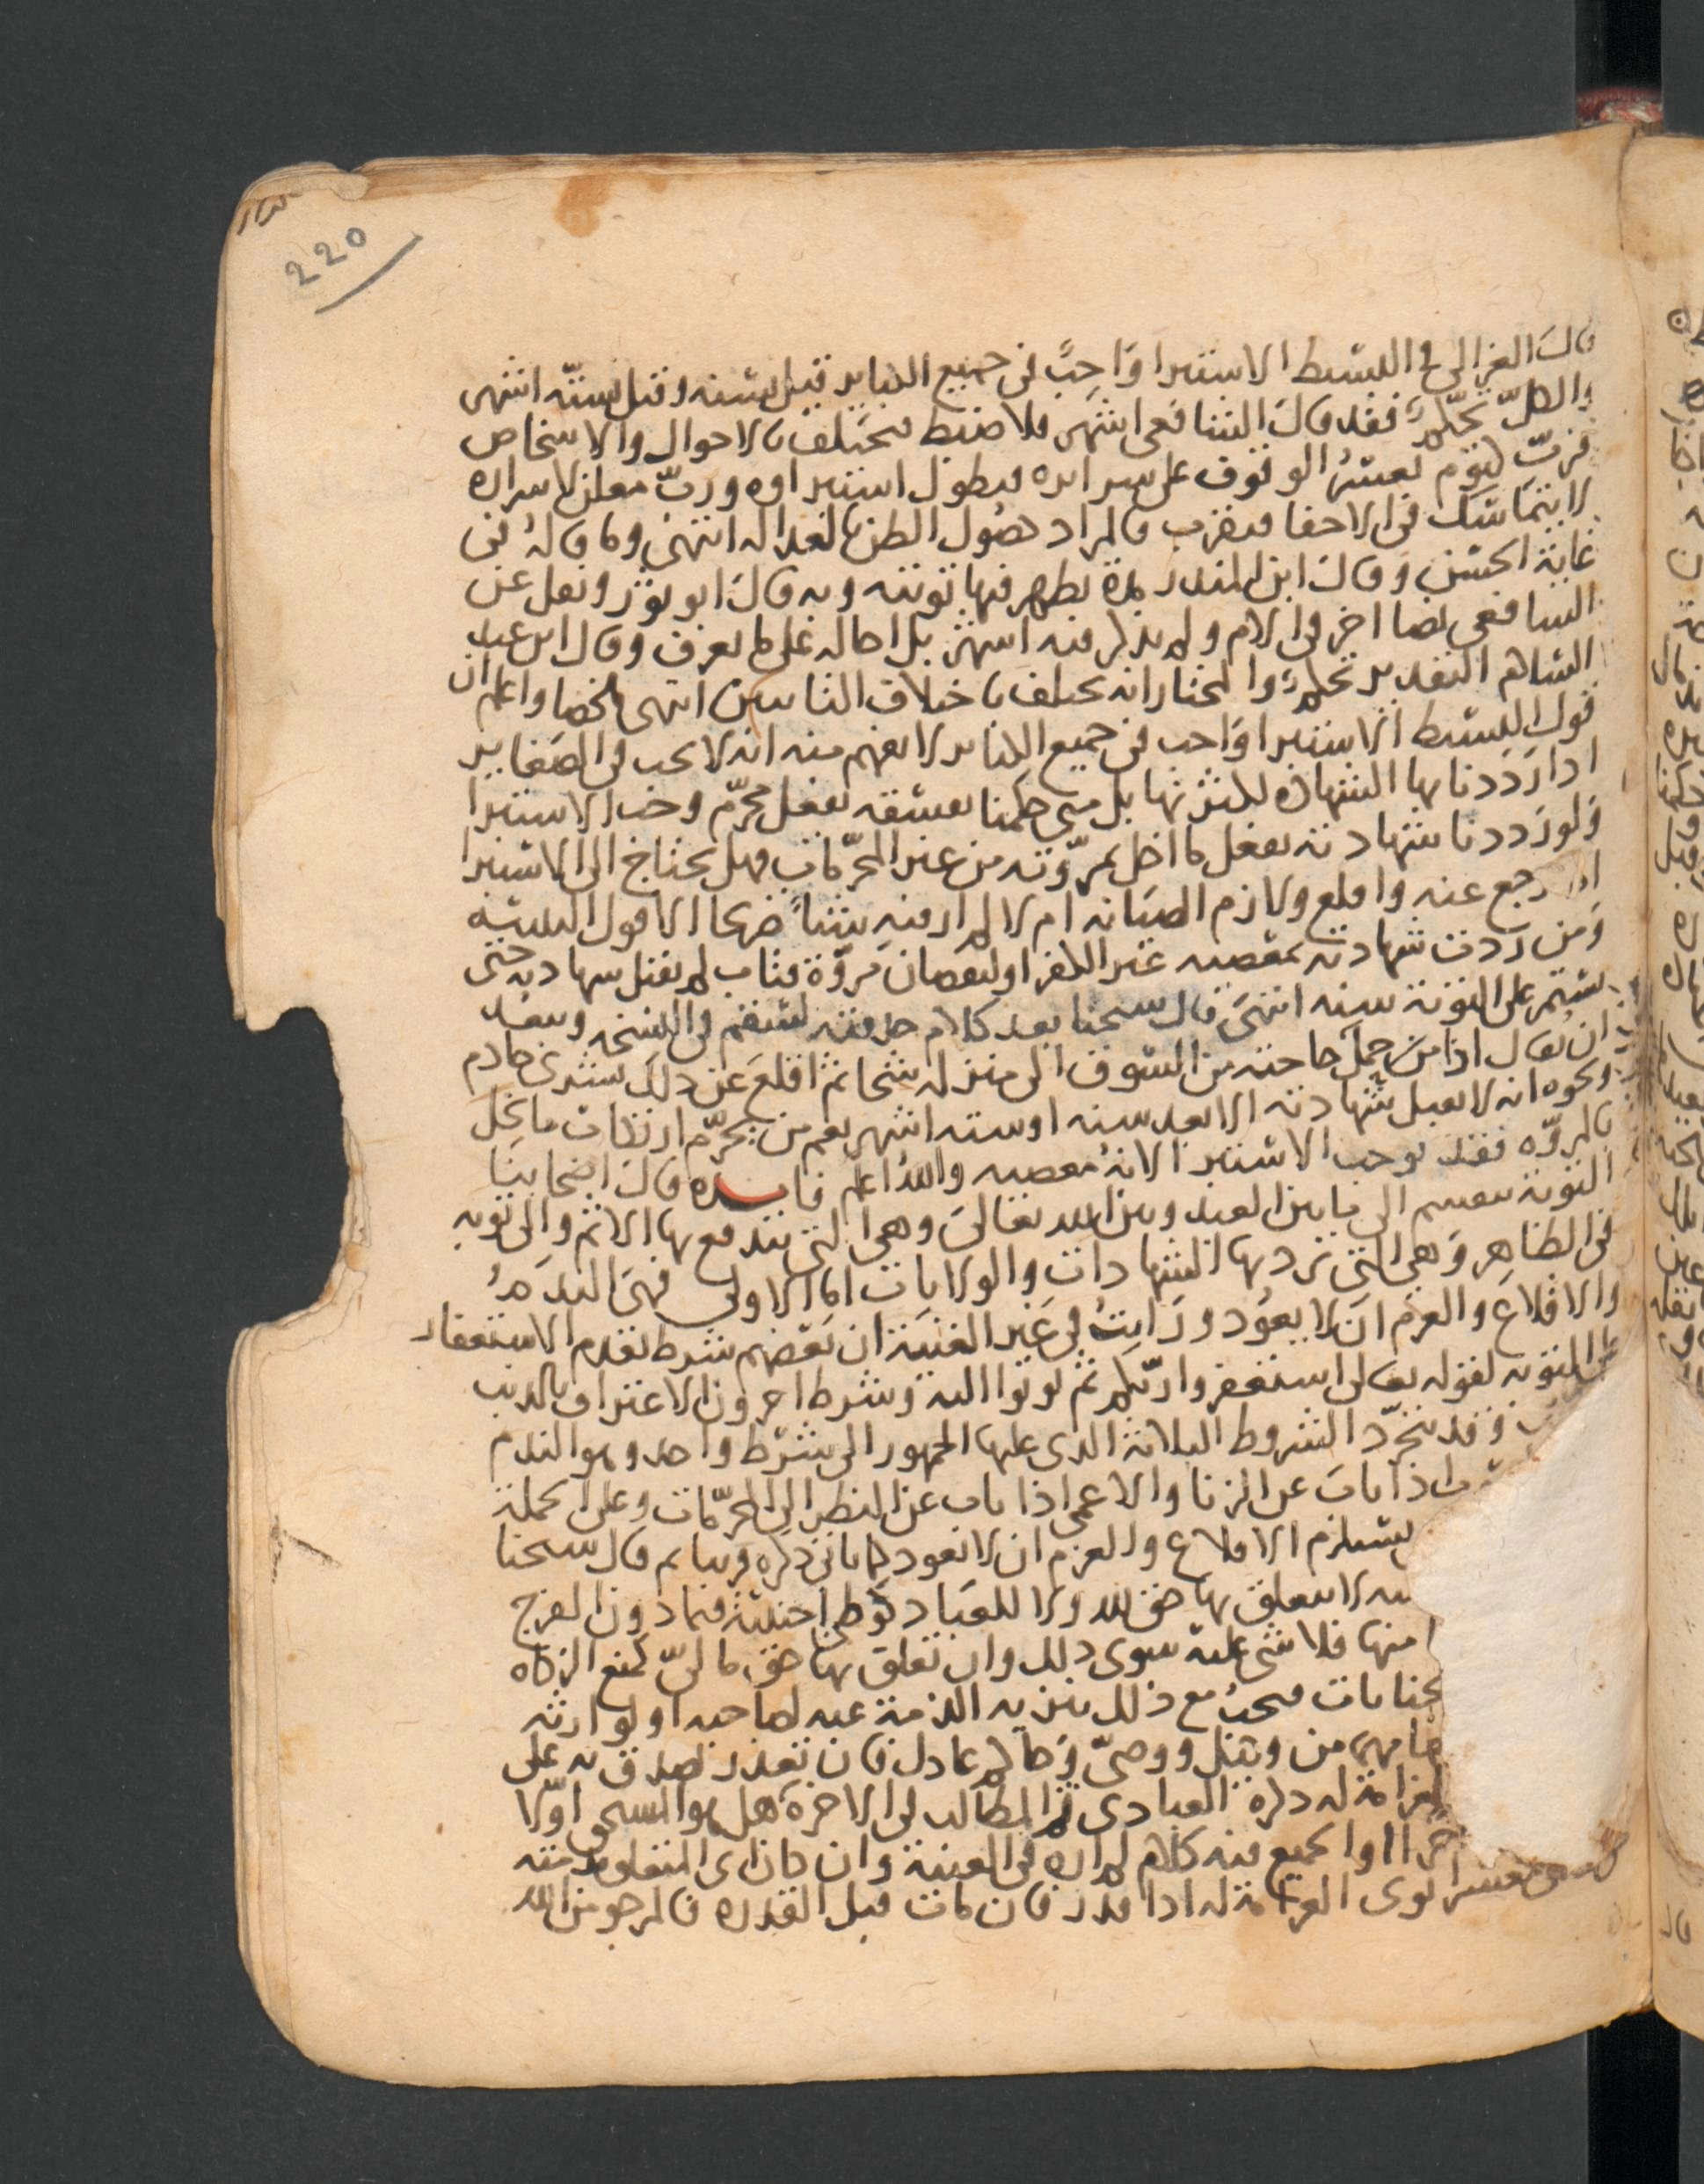 220
قال الغزالي في البسيط الاستبرا واجب في جميع الكباير قيل سنه وقيل ستة اشهر
والكل تحكم فقد قال الشافعي اشهر فلا ضبط فيختلف بالاحوال والاشخاص
فرب كتوم يعسر الوقوف على سرايره فيطول استبراوه ورب معلن لاسراره
لا يتماسك في الاخفا فيقرب فالمراد حصول الظن بالعداله انتهى وما قاله في
غاية الحسن وقال ابن المنذر مدة يظهر فيها توبته وبه قال ابو ثور ونقل عن
الشافعي نصا اخر في الام ولم يذكر فيه اشهر بل احاله على ما يعرف وقال ابن عبد
السلام التقدير تحكم والمختار انه يختلف باختلاف الناس انتهى ملخصا واعلم ان
قول البسيط الاستبرا واجب في جميع الكباير لا يفهم منه انه لا يجب في الصغاير
اذا رددنا بها الشهاده لكثرتها بل متى حكمنا بفسقه بفعل محرم وجب الاستبرا
ولو رددنا شهادته بفعل ما اخل بمروته من غير المحرمات فهل يحتاج الى الاستبرا
اذا رجع عنه واقلع ولازم الصيانه ام لا لم ار فيه شيا صريحا الا قول التنبيه
ومن ردت شهادته بمعصيه غير الكفر او لنقصان مروة فتاب لم تقبل شهادته حتى
يستمر على التوبة سنه انتهى قال شيخنا بعد كلام حذفته لسقم في النسخه وبعيد
ان يقال اذا من حمل حاجته من السوق الى منزله شحا ثم اقلع عن ذلك بشرى خادم
ونحوه انه لا تقبل شهادته الا بعد سنه او ستة اشهر نعم من يحرم ارتكاب ما يخل
بالمروه فقد يوجب الاستبرا لانه معصيه والله اعلم فايده قال اصحابنا
التوبة تنقسم الى ما بين العبد وبين الله تعالى وهي التي يندفع بها الاثم والى توبه
في الظاهر وهي التي ترد بها الشهادات والولايات اما الاولى فهي الندم
والاقلاع والعزم ان لا يعود ورايت في غير الغنية ان بعضهم شرط تقدم الاستغفار
على التوبه لقوله تعالى استغفروا ربكم ثم توبوا اليه وشرط اخرون الاعتراف بالذنب
وقد تجرد الشروط الثلاثة الذي عليها الجمهور الى شرط واحد وهو الندم
اذا تاب عن الزنا والاعمى اذا تاب عن النظر الى المحرمات وعلى الجملة
يستلزم الاقلاع والعزم ان لا يعود كما ياتي ذكره قريبا ثم قال شيخنا
لا يتعلق بها حق لله ولا للعباد كوطي اجنبية فيما دون الفرج
منها فلا شي عليه سوى ذلك وان تعلق بها حق مالي كمنع الزكاه
لجنايات فيجب مع ذلك تبريه الذمة عنه لصاحبه او لوارثه
من وكيل ووصي وحاكم عادل فان تعذر تصدق به على
الغرامة له ذكره العبادي ثم المطالب في الاخرة هل هو المستحق اولا
اخرا او الجميع فيه كلام لم اره في الغنية وان كان اي المتعلق به ذمته
معسر انوى الغرامة له اذا قدر فان مات قبل القدره فالمرجو من الله